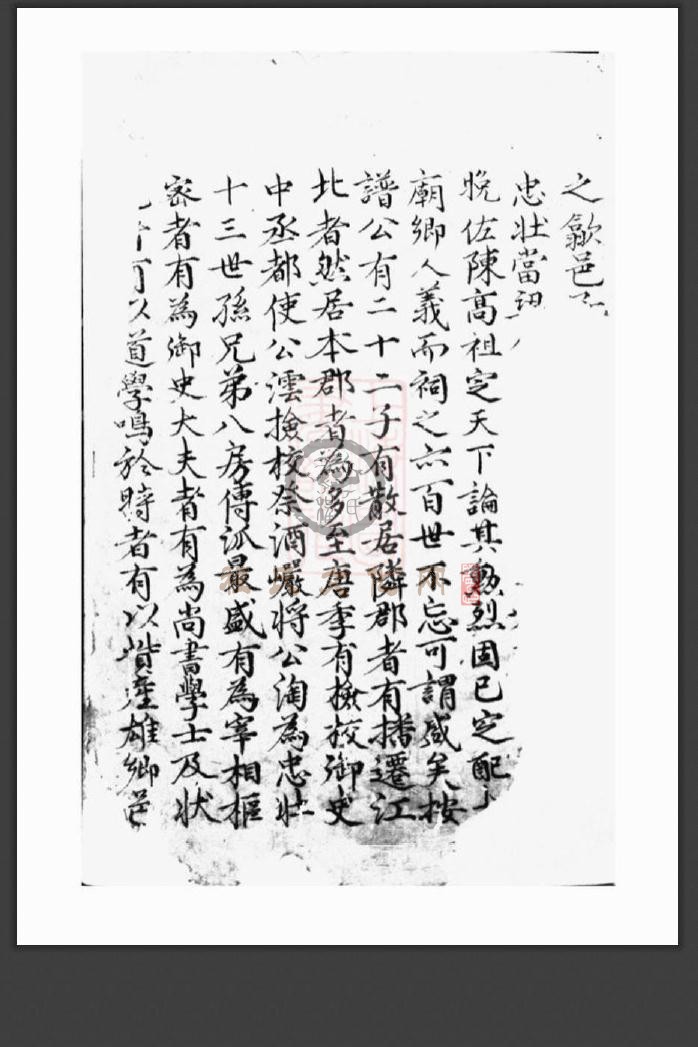 之歙邑
忠壯當
晚佐陳高祖定天下論其勳烈固已定配
廟鄉人義而祠之亦百世不忘可謂盛矣按
譜公有二十二子有散居隣郡者有播遷江
北者然居本郡者為多至唐季有檢挍御史
中丞都使公澐撿校祭酒巖將公淘為忠壯
十三世孫兄弟八房傳派最盛有為宰相樞
密者有為御史大夫者有為尚書學士及狀
可以道學鳴於時者有以貲產雄鄉邑